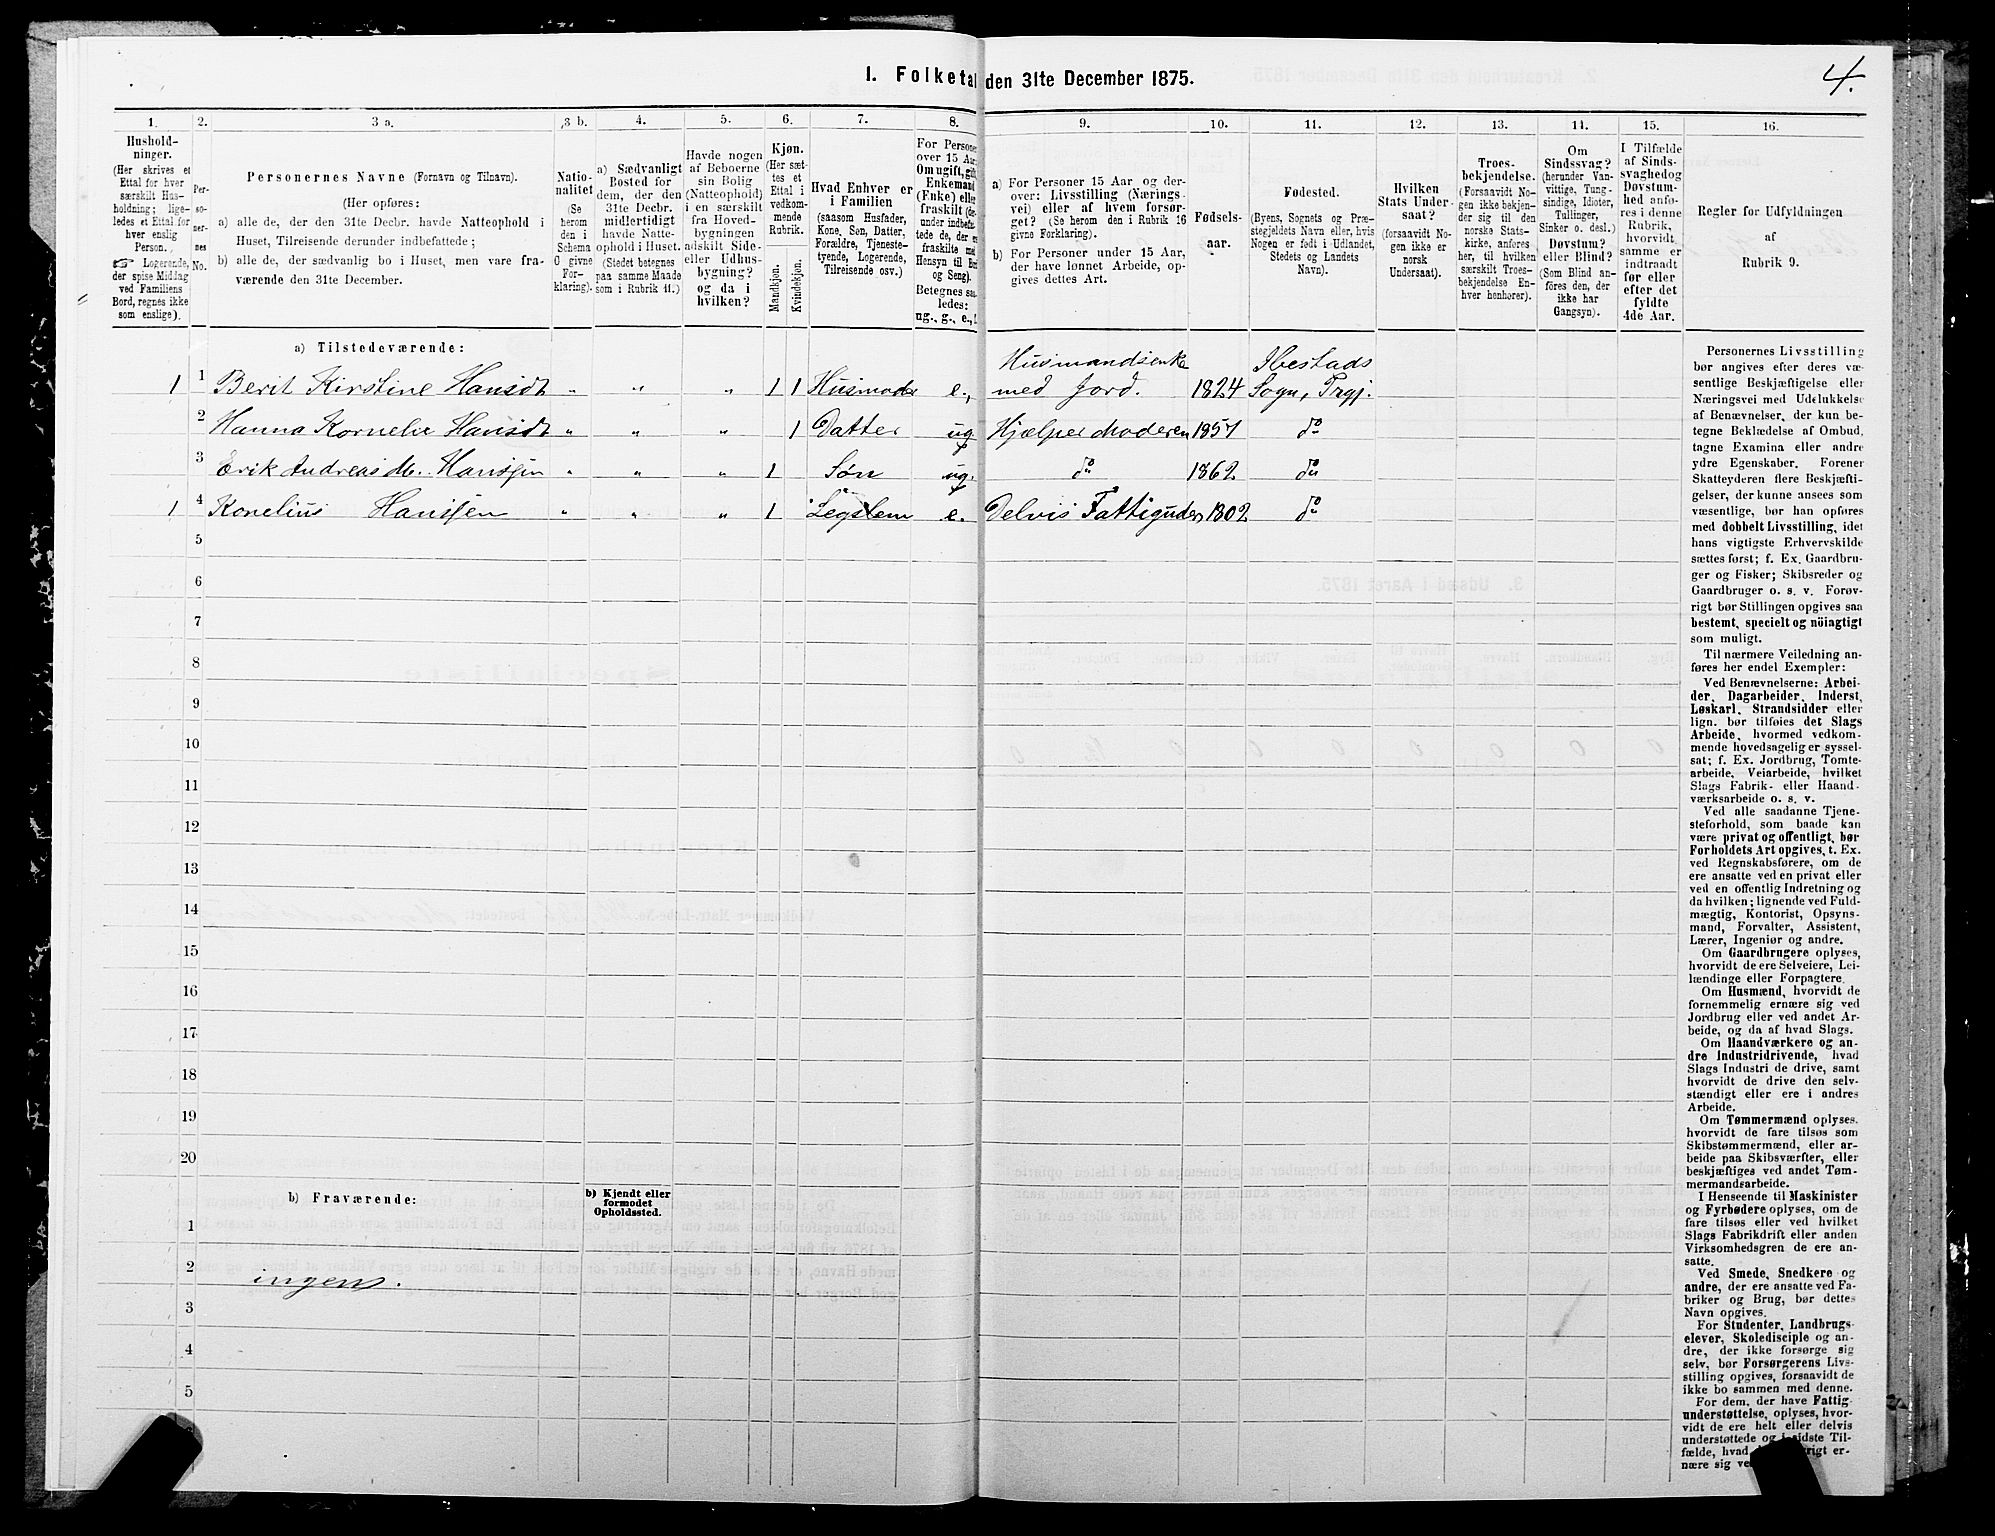 1. Folketal den 31te December 1875.
4.
1.
Hushold-
ninger.
(Her skrives et
Ettal for hver
særskilt Hus-
holdning; lige-
ledes et Ettal for
hver enslig
Person.
☞ Logerende,
der spise Middag
ved Familiens
Bord, regnes ikke
som enslige).
2.
Per-
so-
ner-
nes
No.
3 a.
Personernes Navne (Fornavn og Tilnavn).
(Her opføres:
a) alle de, der den 31te Decbr. havde Natteophold i
Huset, Tilreisende derunder indbefattede;
b) alle de, der sædvanlig bo i Huset, men vare fra-
værende den 31te December.
3 b.
Natio-
nalitet
(Se
herom
den i
Schema
O givne
For-
klaring).
4.
a) Sædvanligt
Bosted for
dem, der den
31te Decbr.
midlertidigt
havde Natte-
ophold i Huset.
(Stedet betegnes
paa samme Maade
som i Rubrik 11.)
5.
Havde nogen
af Beboerne
sin Bolig
(Natteophold)
i en særskilt
fra Hoved-
bygningen
adskilt Side-
eller Udhus-
bygning?
og da i
hvilken?
6.
Kjøn.
(Her sæt-
tes et
Ettal i
vedkom-
mende
Rubrik.
Mandkjøn.
Kvindekjøn.
7.
Hvad Enhver er
i Familien
(saasom Husfader,
Kone, Søn, Datter,
Forældre, Tjeneste-
tyende, Logerende,
Tilreisende osv.)
8.
For Personer
over 15 Aar:
Om ugift, gift,
Enkemand
(Enke) eller
fraskilt
Hensyn til Bord
og Seng).
Betegnes saa-
ledes:
ug., g., e., f.
9.
a) For Personer 15 Aar og der-
over: Livsstilling (Nærings-
vei) eller af hvem forsør-
get? (Se herom den i Rubrik 16
givne Forklaring).
b) For Personer under 15 Aar,
der have lønnet Arbeide, op-
gives dettes Art.
10.
Fødsels-
aar.
11.
Fødested.
(Byens, Sognets og Præ-
stegjeldets Navn eller, hvis
Nogen er født i Udlandet,
Stedets og Landets
Navn).
12.
Hvilken
Stats Under-
saat?
(forsaavidt No-
gen ikke er
norsk
Undersaat).
13.
Troes-
bekjendelse.
(Forsaavidt No-
gen ikke bekjen-
der sig til den
norske Stats-
kirke, anføres
her, til hvilken
særskilt Troes-
bekjendelse En-
hver henhører).
14.
Om
Sindssvag?
(herunder Van-
vittige, Tung-
sindige, Idioter,
Tullinger,
Sinker o. desl.)
Døvstum?
eller Blind?
(Som Blind an-
føres den, der
ikke har
Gangsyn).
15.
I Tilfælde
af Sinds-
svaghed og
Døvstum-
hed anfø-
res i denne
Rubrik,
hvorvidt
samme er
indtraadt
før eller
efter det
fyldte
4de Aar.
16.
Regler for Udfyldningen
af
Rubrik 9.
a) Tilstedeværende:
1 1 Berit Kirstine Hansdt „ „ „ 1 1 Husmoder e., Husmandsenke
med Jord. 1824 Ibestads
Sogn, Prgj.
2 Hanna Kornelie Hansdt „ „ „ 1 Datter ug Hjælper Moderen 1857 do
3 Erik Andreas M. Hanssen „ „ „ 1 Søn ug. do 1862 do
1 4 Konelius Hanssen „ „ „ 1 Legslem e. Delvis Fattigunder 1802 do
5
6
7
8
9
10
11
12
13
14
15
16
17
18
19
20
b) Fraværende:
b) Kjendt eller
formodet
Opholdssted.
1
2 ingen.
3
4
5
Personernes Livsstilling
bør angives efter deres væ-
sentlige Beskjæftigelse eller
Næringsvei med Udelukkelse
af Benævnelser, der kun be-
tegne Beklædelse af Ombud,
tagne Examina eller andre
ydre Egenskaber. Forener
Skatteyderen flere Beskjæfti-
gelser, der kunne ansees som
væsentlige, bør han opføres
med dobbelt Livsstilling, idet
hans vigtigste Erhvervskilde
sættes først; f. Ex. Gaardbru-
ger og Fisker; Skibsreder og
Gaardbruger o. s. v. Forøv-
rigt bør Stillingen opgives saa
bestemt, specielt og nöiagtigt
som muligt.
Til nærmere Veiledning an-
føres her endel Exempler:
Ved Benævnelserne: Arbei-
der, Dagarbeider, Inderst,
Løskarl, Strandsidder eller
lign. bør tilføies det Slags
Arbeide, hvormed vedkom-
mende hovedsagelig er syssel-
sat; f. Ex. Jordbrug, Tomte-
arbeide, Veiarbeide, hvilket
Slags Fabrik- eller Haand-
værksarbeide o. s. v.
Ved alle saadanne Tjene-
steforhold, som baade kan
være privat og offentligt, bør
Forholdets Art opgives, t. Ex.
ved Regnskabsførere, om de
ere ansatte ved en privat eller
ved en offentlig Indretning og
da hvilken; lignende ved Fuld-
mægtig, Kontorist, Opsyns-
mand, Forvalter, Assistent,
Lærer, Ingeniør og andre.
Om Gaardbrugere oplyses,
hvorvidt de ere Selveiere, Lei-
lændinge eller Forpagtere.
Om Husmænd, hvorvidt de
fornemmelig ernære sig ved
Jordbrug eller ved andet Ar-
beide, og da af hvad Slags.
Om Haandværkere og an-
dre Industridrivende, hvad
Slags Industri de drive, samt
hvorvidt de drive den selv-
stændigt eller ere i andres
Arbeide.
Om Tømmermænd oplyses,
hvorvidt de fare tilsøs som
Skibstømmermænd, eller ar-
beide paa Skibsværfter, eller
beskjæftiges ved andet Tøm-
mermandsarbeide.
I Henseende til Maskinister
og Fyrbødere oplyses, om de
fare tilsøs eller ved hvilket
Slags Fabrikdrift eller anden
Virksomhedsgren de ere an-
satte.
Ved Smede, Snedkere og
andre, der ere ansatte ved Fa-
briker og Brug, bør dettes
Navn opgives.
For Studenter, Landbrugs-
elever, Skoledisciple og an-
dre, der ikke forsørge sig
selv, bør Forsørgerens Livs-
stilling opgives, forsaavidt de
ikke bo sammen med denne.
For dem, der have Fattig-
understøttelse, oplyses, hvor-
vidt de ere helt eller delvis
understøttede og i sidste Til-
fælde, hvad
nære sig